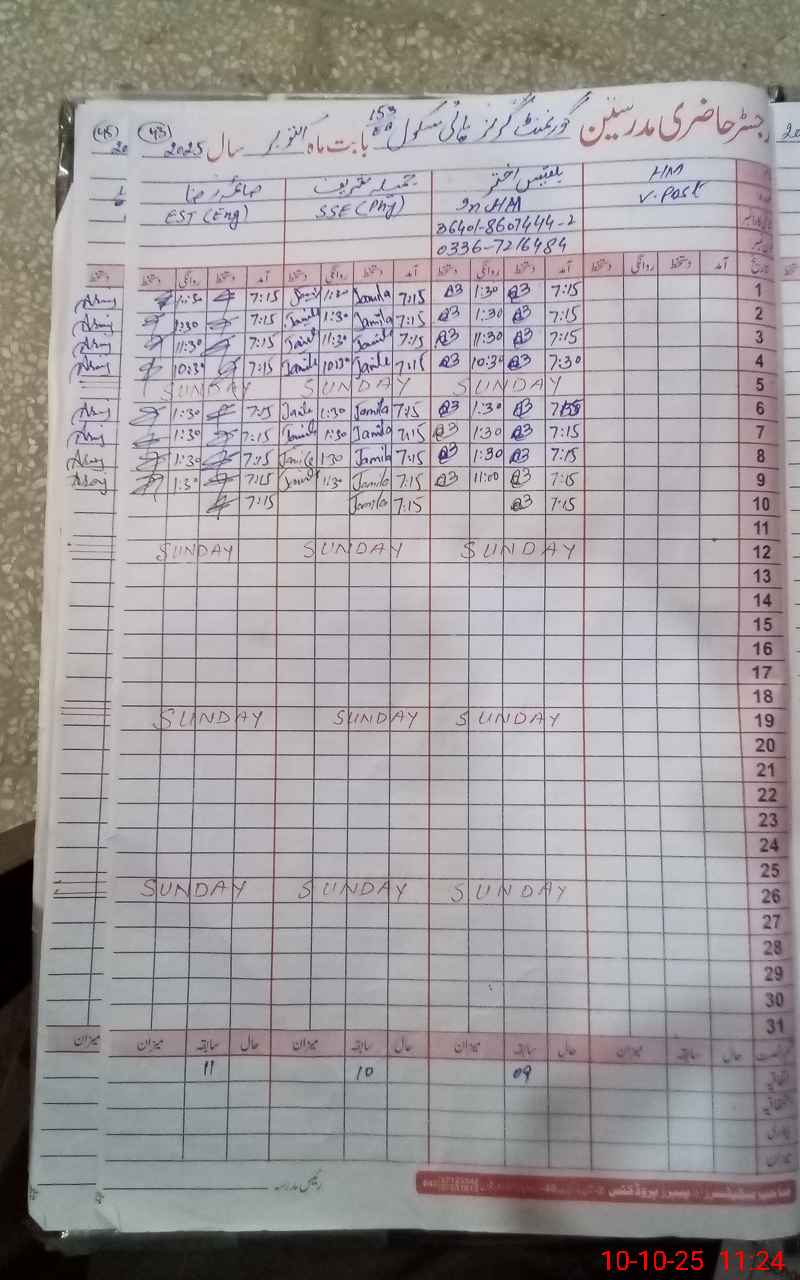 رجسٹر حاضری مدرسین گورنمنٹ گرلز ہائی سکول 153 بابت ماہ اکتوبر سال 2025
43
45
HM بلقیس اختر جمیلہ شریف صائمہ رضا
V. Post In HM SSE (Phy) EST (Eng)
36401-8607444-2
0336-7216484
تاریخ آمد دستخط روانگی دستخط آمد دستخط روانگی دستخط آمد دستخط روانگی دستخط آمد دستخط روانگی دستخط
1 7:15 1:30 7:15 Jamila 1:30 Jamila 7:15 1:30
2 7:15 1:30 7:15 Jamila 1:30 Jamila 7:15 1:30
3 7:15 11:30 7:15 Jamila 11:30 Jamila 7:15 11:30
4 7:30 10:30 7:15 Jamila 10:30 Jamila 7:15 10:30
5 SUNDAY SUNDAY SUNDAY
6 1:30 7:15 Jamila 1:30 Jamila 7:15 1:30
7 7:15 1:30 7:15 Jamila 1:30 Jamila 7:15 1:30
8 7:15 1:30 7:15 Jamila 1:30 Jamila 7:15 1:30
9 7:15 11:00 7:15 Jamila Jamila 7:15 1:30
10 7:15 7:15 Jamila 7:15
11
12 SUNDAY SUNDAY SUNDAY
13
14
15
16
17
18
19 SUNDAY SUNDAY SUNDAY
20
21
22
23
24
25
26 SUNDAY SUNDAY SUNDAY
27
28
29
30
31
حال سابقہ میزان حال سابقہ میزان حال سابقہ میزان حال سابقہ میزان میزان
09 10 11
میزان
رئیس مدرسہ
10-10-25 11:24